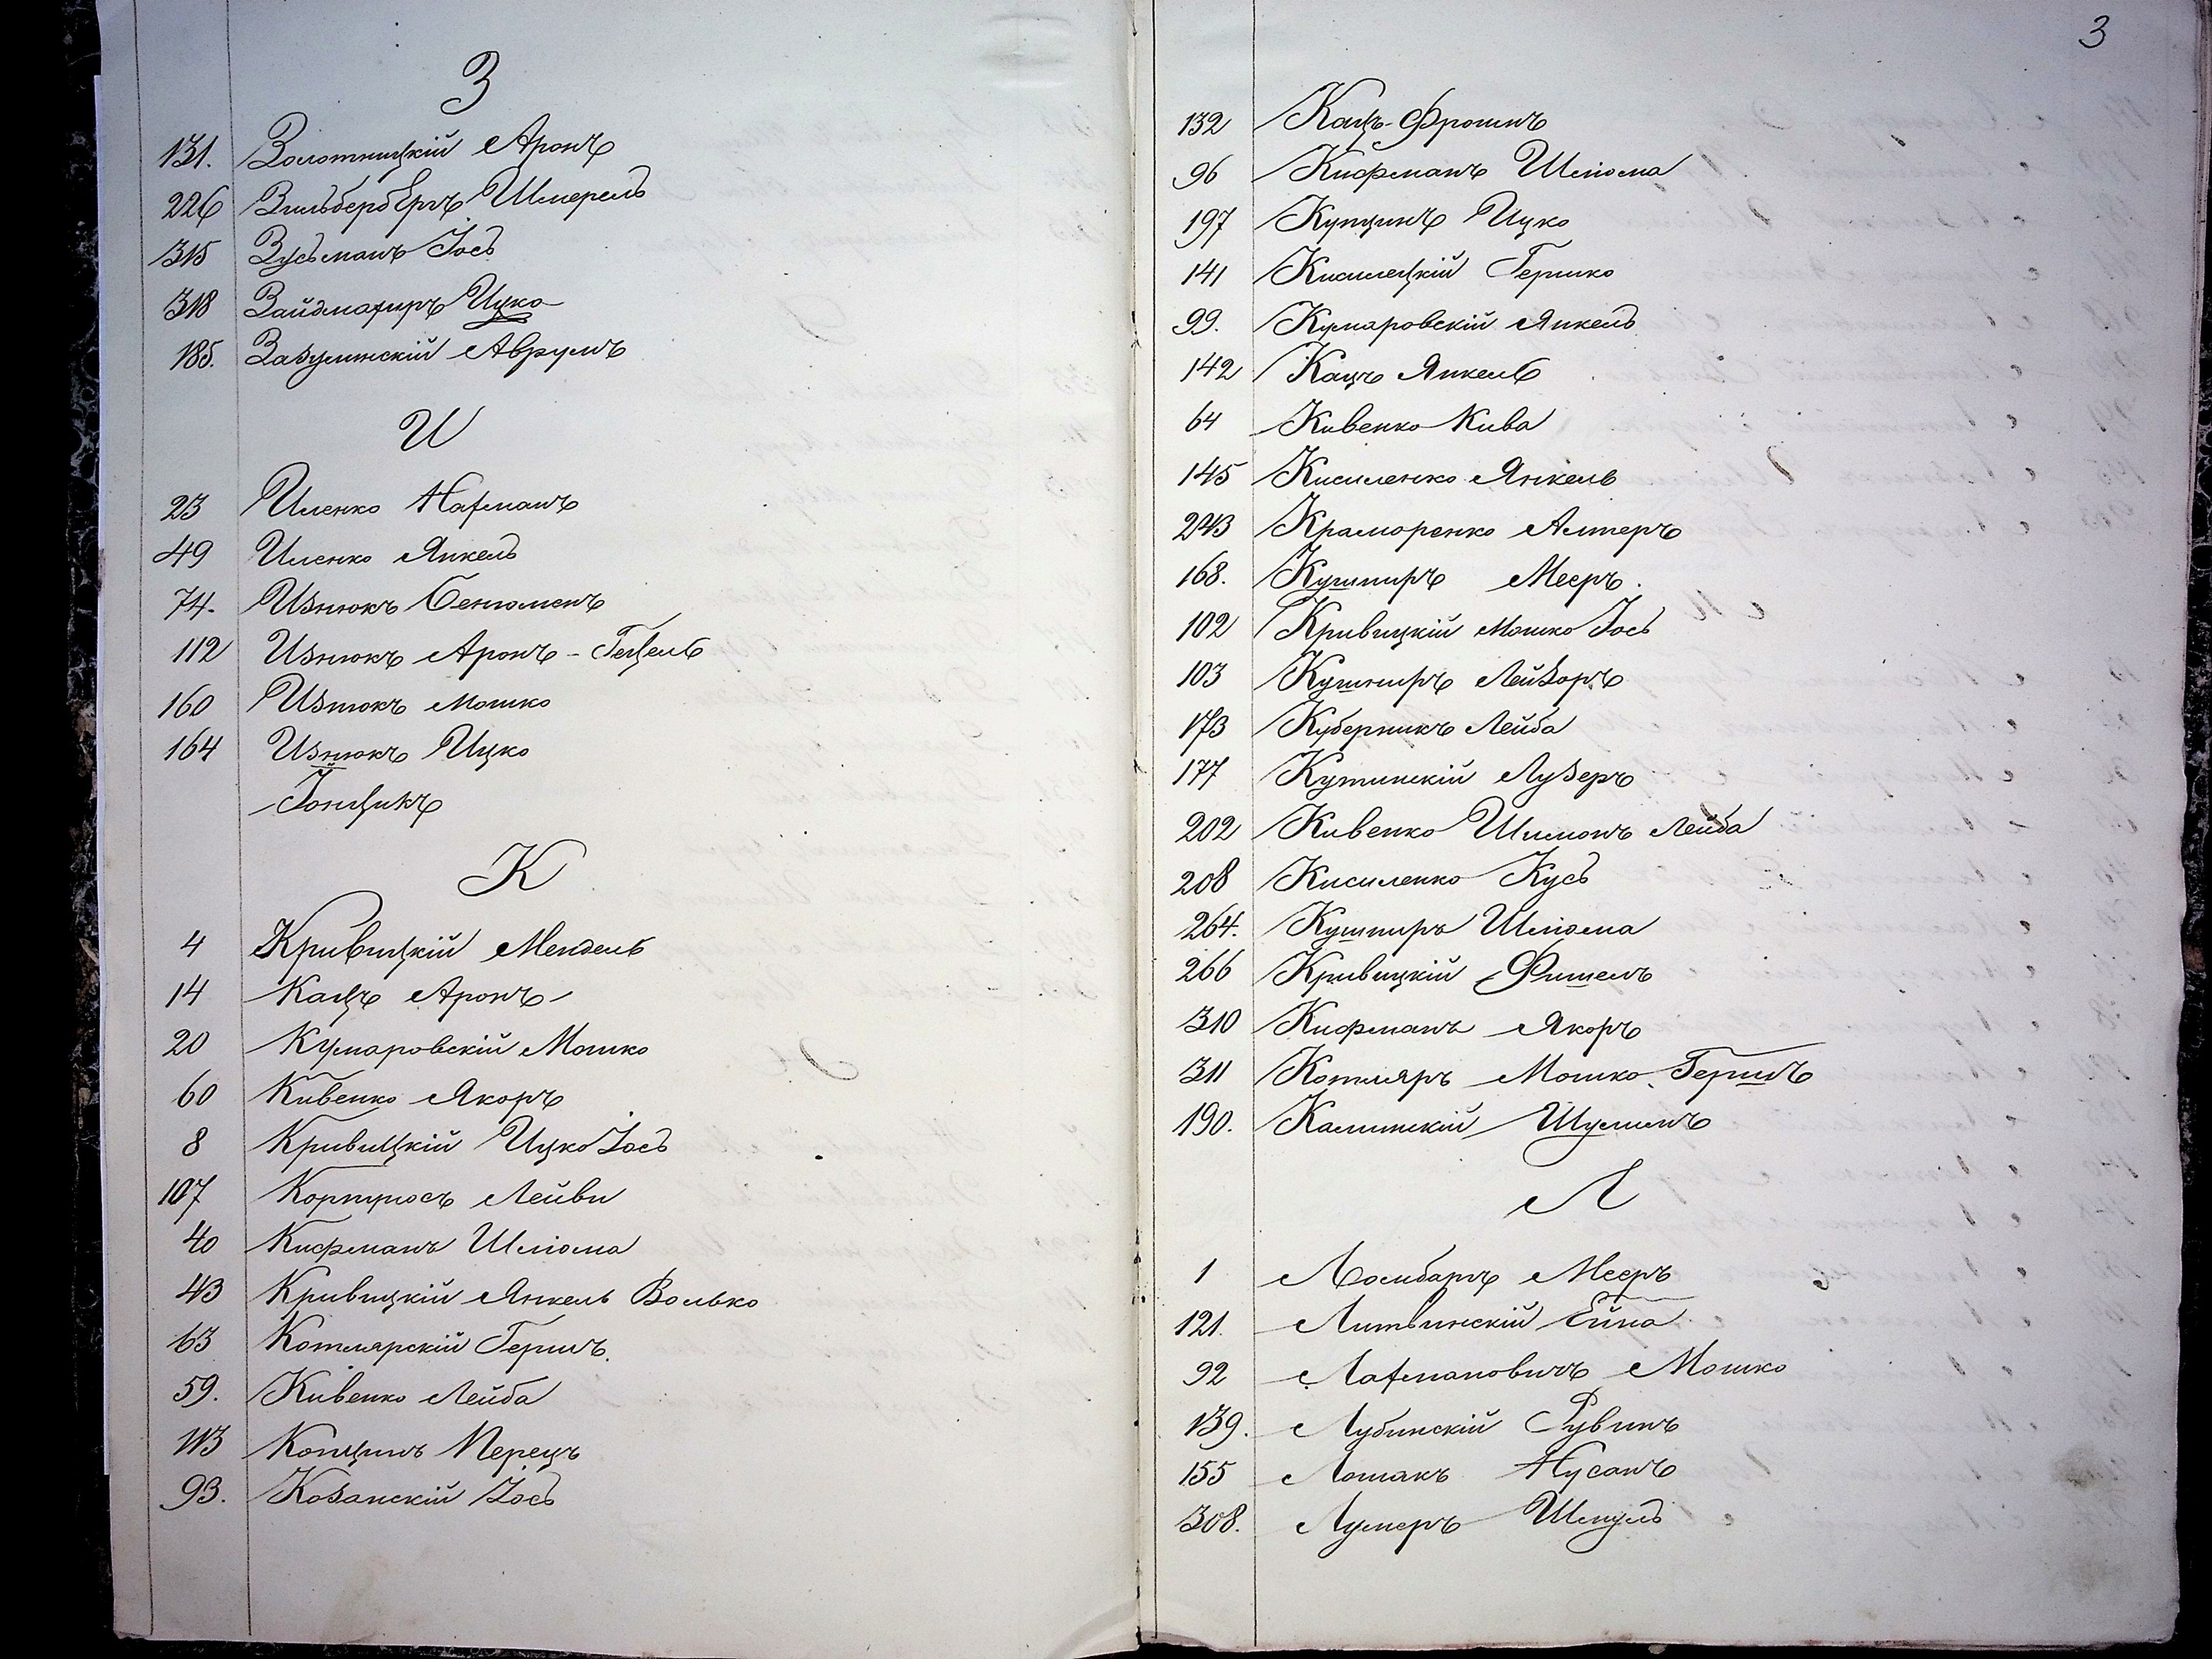 З
131. Золотницкій Аронъ
226 Зильберберъ Шмерель
315 Зусьманъ Іось
318 Зайдмахиръ Ицко
185. Зазулинскій Аврумъ
И
23 Иленко Нахманъ
49 Иленко Янкель
74. Изнюкъ Беньоменъ
112 Изнюкъ Аронъ-Гецель
160 Изнюкъ Мошко
164 Изнюкъ Ицко
Іонцикъ
К
4 Кривицкій Мендель
14 Кацъ Аронъ
20 Кумаровскій Мошко
60 Кивенко Якоръ
8 Кривицкій Ицко Іось
107 Корпусъ Лейви
40 Кифманъ Шліома
43 Кривицкій Янкель Волько
63 Котлярскій Гершъ
59. Кивенко Лейба
113 Копцинъ Перецъ
93. Козанскій Іось
3
132 Кацъ-Фроимъ
96 Кифманъ Шліома
197 Купцинъ Ицко
141 Кисилецкій Гершко
99. Кумаровскій Янкель
142 Кацъ Янкель
64 Кивенко Кива
145 Кисиленко Янкель
243 Краморенко Алтеръ
168. Кушниръ Мееръ
102 Кривицкій Мошко Іось
103 Кушниръ Лейзоръ
173 Куберникъ Лейба
177 Кутинскій Лузеръ
202 Кивенко Шимонъ Лейба
208 Кисиленко Кусь
264. Кушниръ Шліома
266 Кривицкій Фишель
310 Кифманъ Якоръ
311 Котляръ Мошко Гершъ
190. Калинскій Шулимъ
Л
1 Ломбаръ Мееръ
121. Литвинскій Ейна
92 Лахмановичъ Мошко
139. Лубинскій Рувинъ
155 Лошакъ Нусанъ
308. Лумеръ Шмуль